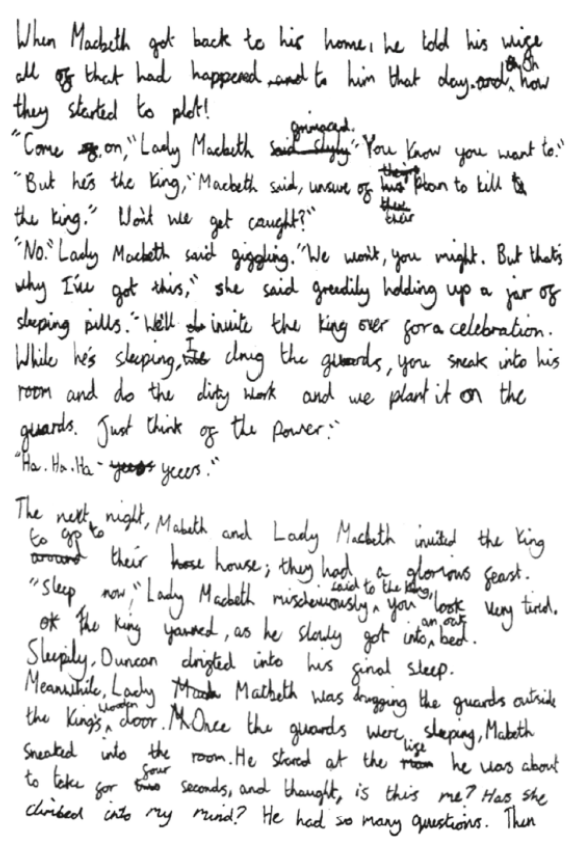 When Macbeth got back to his home, he told his wife
all of that had happened and to him that day. and, on how
they started to plot!
grimaced.
"Come on," Lady Macbeth said slyly "You know you want to."
"But he's the King," Macbeth said, unsure of his their plan to kill
the king." Won't we get caught?"
"No." Lady Macbeth said giggling. "We won't, you might. But that's
why I've got this," she said greedily holding up a jar of
sleeping pills." We'll do invite the king over for a celebration.
While he's sleeping, I drug the guards, you sneak into his
room and do the dirty work and we plant it on the
guards. Just think of the power."
"Ha. Ha. Ha - yeeees yeees."
The next night, Mabeth and Lady Macbeth invited the King
to go to
around their hose house; they had a glorious feast.
said to the King,
"Sleep now," Lady Macbeth mischeivously, you look very tired.
an oak
ok The King yawned, as he slowly got into bed.
Sleepily, Duncan drifted into his final sleep.
Meanwhile, Lady Macbeth was drugging the guards outside
the King's wooden door. Once the guards were sleeping, Mabeth
sneaked into the room. He stared at the life room he was about
to take for four two seconds, and thaught, is this me? Has she
climbed into my mind? He had so many questions. Then